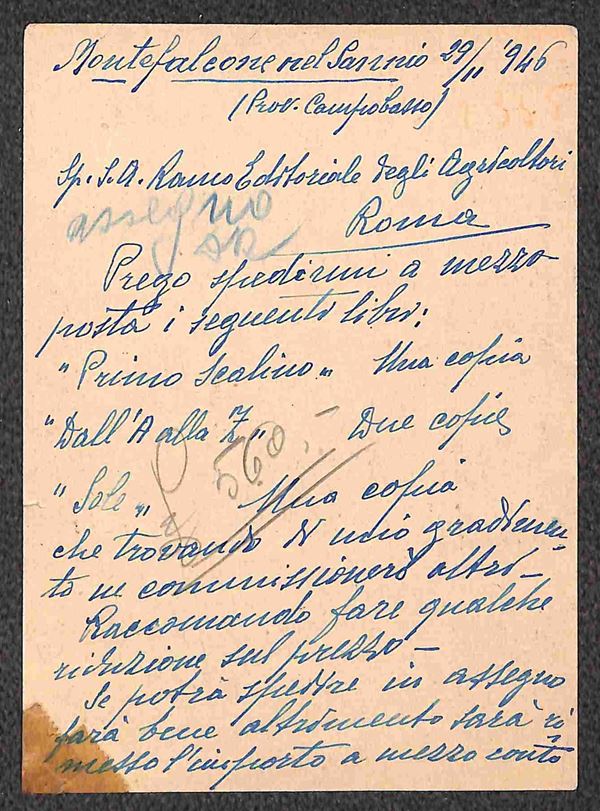 Montefalcone nel Sannio 29/11 '946
(Prov. Campobasso)
Sp. S. A. Ramo Editoriale degli Agricoltori
assegno
Roma
Prego spedirmi a mezzo
posta i seguenti libri:
"Primo Scalino" Una copia
"Dall'A alla Z" Due copie
560.-
"Sole" Una copia
che trovando di mio gradimen-
to ne commissionerò altri-
Raccomando fare qualche
riduzione sul prezzo-
Se potrà spedire in assegno
farà bene altrimento sarà ri-
messo l'importo a mezzo conto